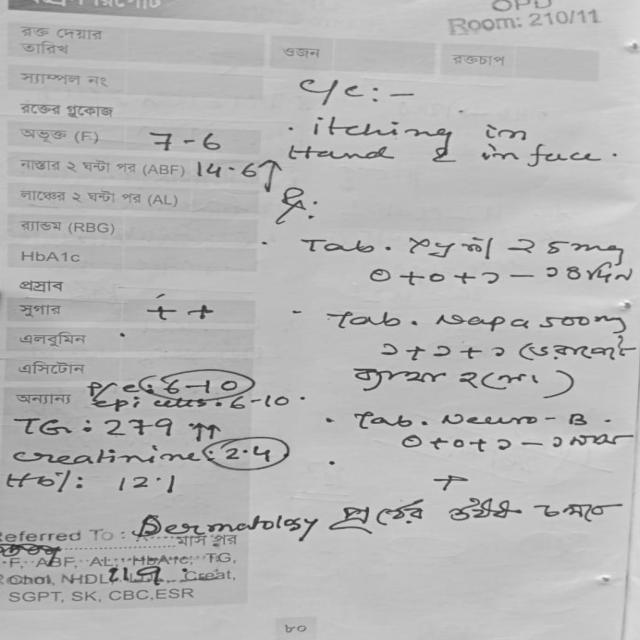 OPD
Room: 210/11
রক্ত দেয়ার
তারিখ
ওজন
রক্তচাপ
স্যাম্পল নং
রক্তের গ্লুকোজ
অভূক্ত (F) 7-6
নাস্তার ২ ঘন্টা পর (ABF) 14.6↑
লাঞ্চের ২ ঘন্টা পর (AL)
র‍্যান্ডম (RBG)
HbA1c
প্রস্রাব
সুগার ++
এলবুমিন
এসিটোন
অন্যান্য
Pus: 6-10
Epi cells: 6-10.
TG: 279 ↑↑
Creatinine: 2.4
Hb%: 12.1
C/C:-
itching in
Hand & in face.
Rx:
Tab. 25mg
০+০+১ - ১৪ দিন
Tab. Napa 500mg
১+১+১ (ভরাপেটে
Tab. Neuro-B.
০+০+১ - ১মাস
+
Dermatology র ঔষধ চলবে
Referred To:
মাস পর
F, ABF, AL, HbA1c, TG,
Chol, NHDL, Creat,
SGPT, SK, CBC,ESR
৮০